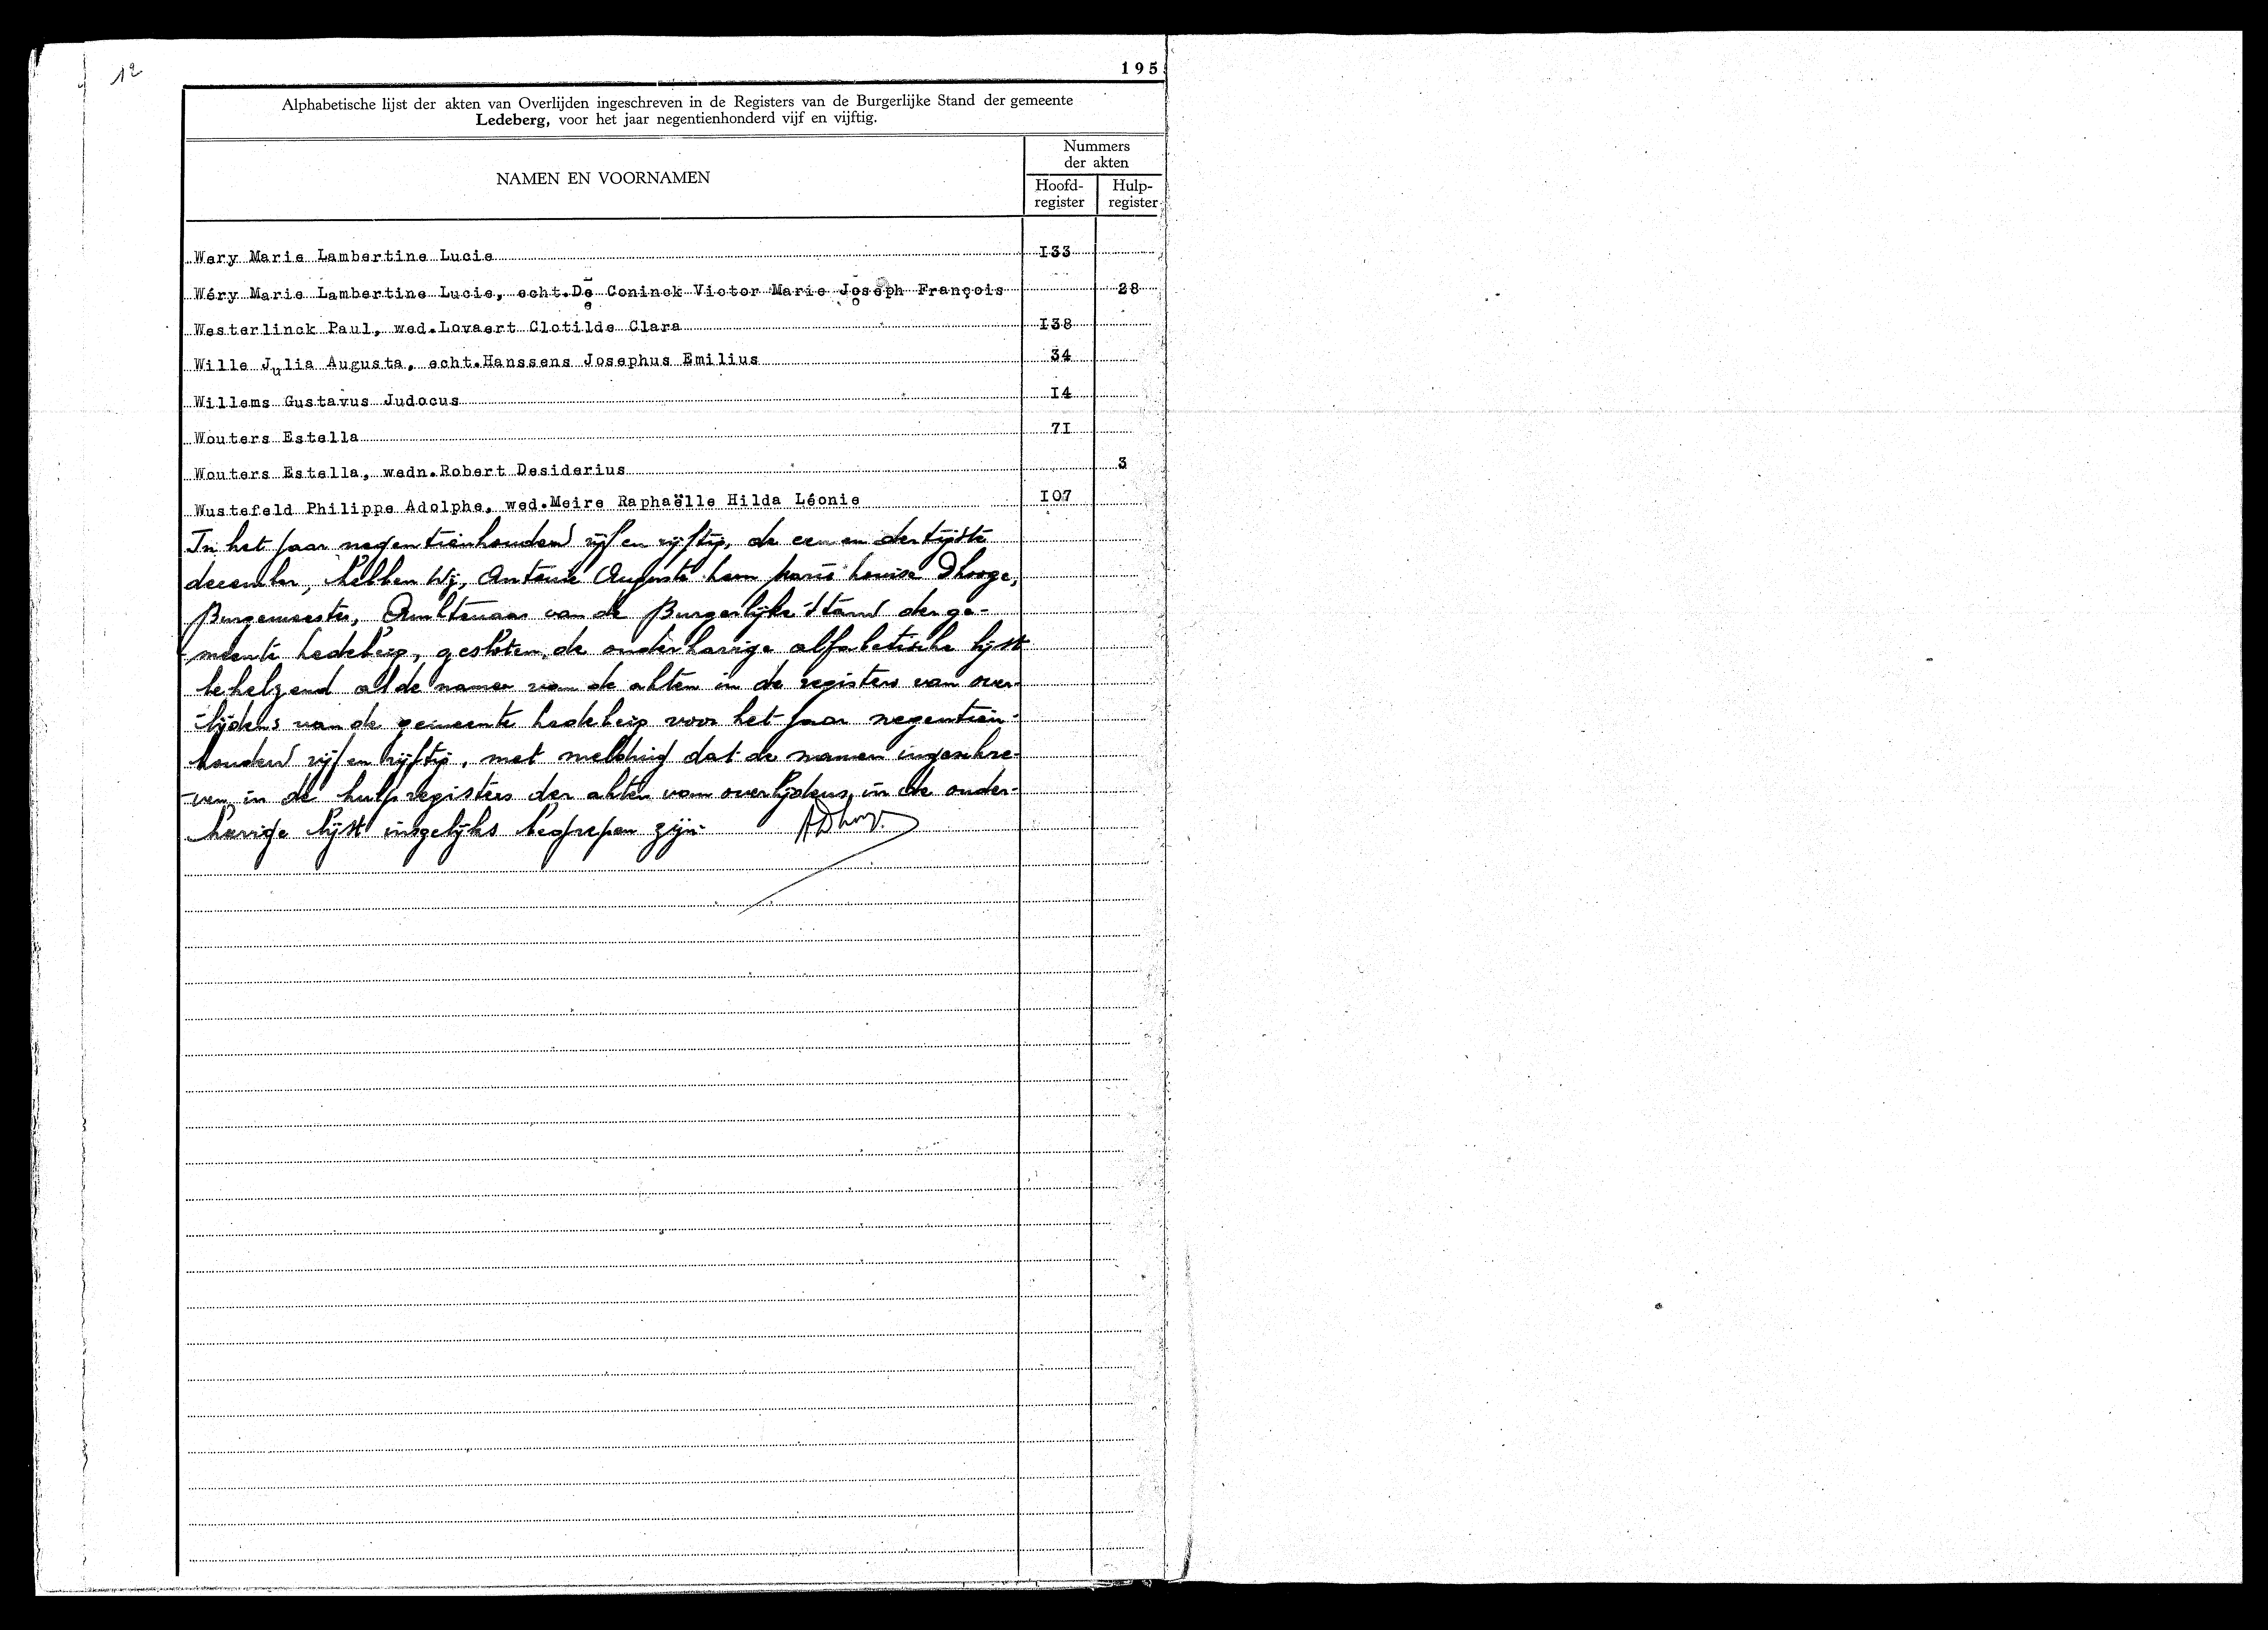 12
195
Alphabetische lijst der akten van Overlijden ingeschreven in de Registers van de Burgerlijke Stand der gemeente
Ledeberg, voor het jaar negentienhonderd vijf en vijftig.
NAMEN EN VOORNAMEN
Nummers
der akten
Hoofd-
register
Hulp-
register
Wery Marie Lambertine Lucie 133
Wéry Marie Lambertine Lucie, echt.De Coninck Victor Marie Joseph François 28
Westerlinck Paul, wed.Lovaert Clotilde Clara 138
Wille Julia Augusta, echt.Hanssens Josephus Emilius 34
Willems Gustavus Judocus 14
Wouters Estella 71
Wouters Estella, wedn.Robert Desiderius 3
Wustefeld Philippe Adolphe, wed.Meire Raphaëlle Hilda Léonie 107
In het jaar negentienhonderd vijf en vijftig, de een en dertigste
december, hebben Wij, Antoine Auguste Marie Louise Dhooge,
Burgemeester, Ambtenaar van de Burgerlijke Stand der ge-
meente Ledeberg, gesloten, de onderhavige alfabetische lijst
behelzend al de namen van de akten in de registers van over-
lijdens van de gemeente Ledeberg voor het jaar negentien-
honderd vijf en vijftig, met melding dat de namen ingeschre-
ven in de hulpregisters der akten van overlijdens, in de onder-
havige lijst insgelijks begrepen zijn. ADhooge